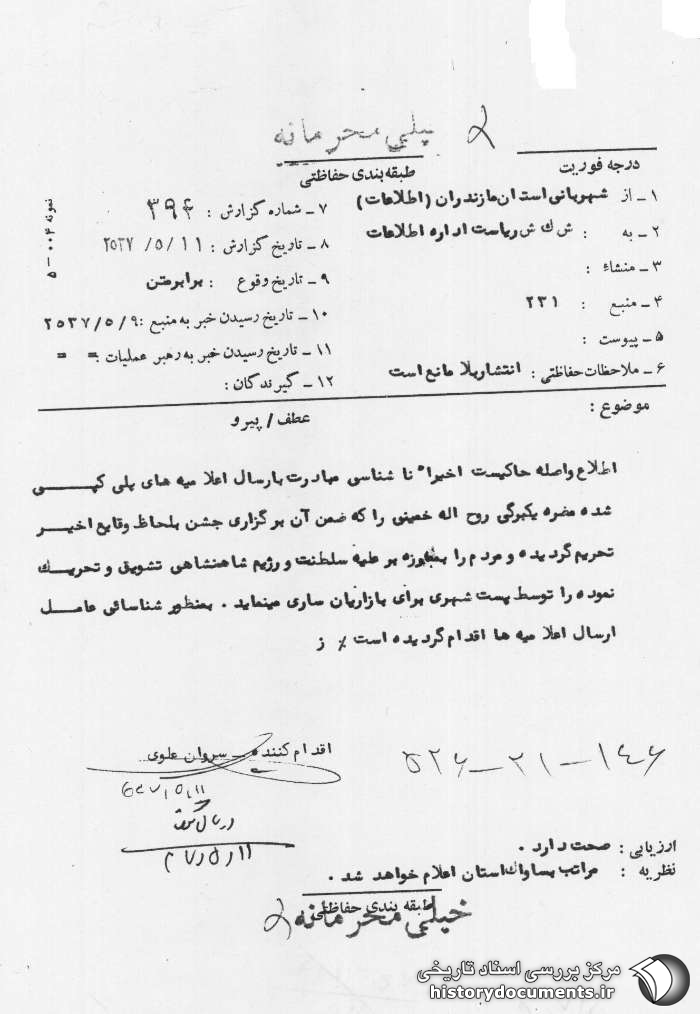 خیلی محرمانه
درجه فوریت
طبقه‌بندی حفاظتی
۱ ـ از شهربانی استان مازندران (اطلاعات)
۲ ـ به : ش ك ش ریاست اداره اطلاعات
۳ ـ منشاء :
۴ ـ منبع : ۲۳۱
۵ ـ پیوست :
۶ ـ ملاحظات حفاظتی : انتشار بلا مانع است
۷ ـ شماره گزارش : ۳۹۴
۸ ـ تاریخ گزارش : ۲۵۳۷/۵/۱۱
۹ ـ تاریخ وقوع : برابر متن
۱۰ ـ تاریخ رسیدن خبر به منبع : ۲۵۳۷/۵/۹
۱۱ ـ تاریخ رسیدن خبر به رهبر عملیات : = =
۱۲ ـ گیرندگان :
نمونه ۰۰۴ ـ ۵
موضوع :
عطف / پیرو
اطلاع واصله حاکیست اخیرا" نا شناسی مبادرت بارسال اعلا میه های پلی کپی
شده مضره یکبرگی روح اله خمینی را که ضمن آن برگزاری جشن بلحاظ وقایع اخیر
تحریم گردیده و مردم را بمبارزه بر علیه سلطنت و رژیم شاهنشاهی تشویق و تحریك
نموده را توسط پست شهری برای بازاریان ساری مینماید . بمنظور شناسائی عامل
ارسال اعلا میه ها اقدام گردیده است ٪ ز
اقدام کننده ـ سروان علوی
۱۴۶ ـ ۲۱ ـ ۵۲۶
ارزیابی : صحت دارد .
نظریه : مراتب بساواك استان اعلام خواهد شد .
طبقه بندی حفاظتی
خیلی محرمانه
مرکز بررسی اسناد تاریخی
historydocuments.ir